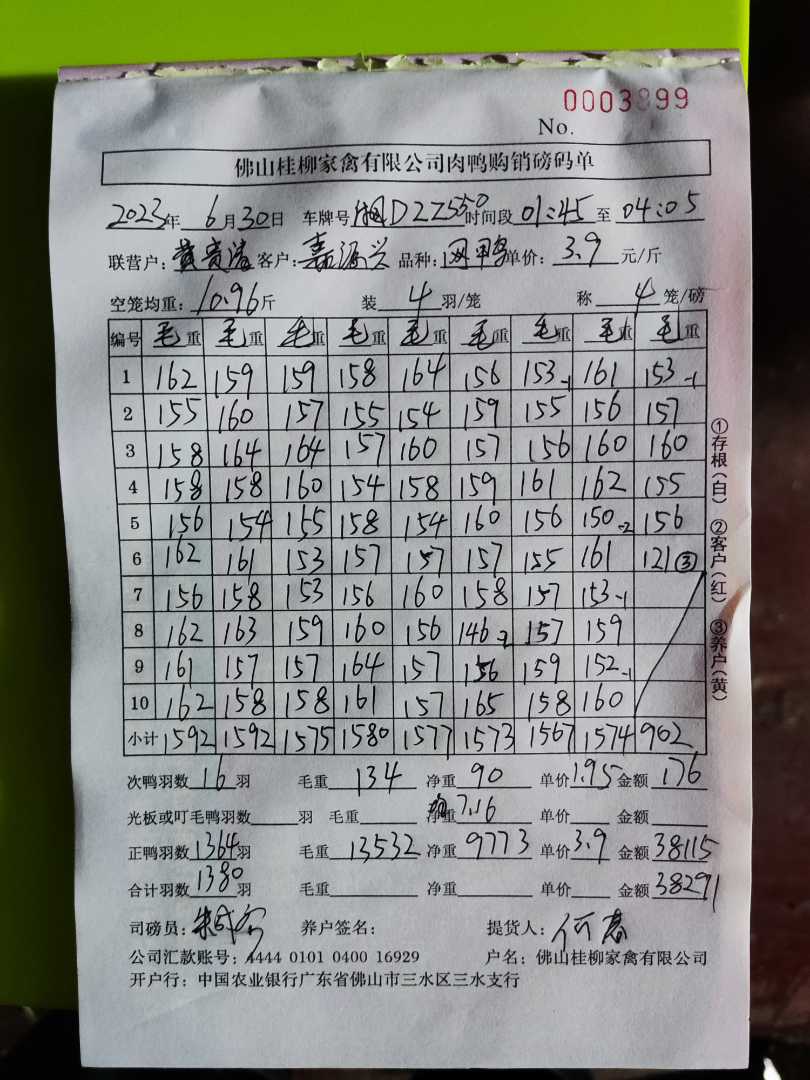 0003899
No.
佛山桂柳家禽有限公司肉鸭购销磅码单
2023年 6月30日 车牌号 湘D2Z550 时间段 01:45 至 04:05
联营户: 黄贵清 客户: 嘉源兴 品种: 网鸭 单价: 3.9 元/斤
空笼均重: 10.96斤 装 4 羽/笼 称 4 笼/磅
编号 毛重 毛重 毛重 毛重 毛重 毛重 毛重 毛重 毛重
1 162 159 159 158 164 156 153-1 161 153-1
2 155 160 157 155 154 159 155 156 157
3 158 164 164 157 160 157 156 160 160
4 158 158 160 154 158 159 161 162 155
5 156 154 155 158 154 160 156 150-2 156
6 162 161 153 157 157 157 155 161 121③
7 156 158 153 156 160 158 157 153-1
8 162 163 159 160 156 146-2 157 159
9 161 157 157 164 157 156 159 152-1
10 162 158 158 161 157 165 158 160
小计 1592 1592 1575 1580 1577 1573 1567 1574 902
次鸭羽数 16 羽 毛重 134 净重 90 单价 1.95 金额 176
光板或叮毛鸭羽数 羽 毛重 净重 7.16 单价 金额
正鸭羽数 1364 羽 毛重 13532 净重 9773 单价 3.9 金额 38115
合计羽数 1380 羽 毛重 净重 单价 金额 38291
司磅员: 养户签名: 提货人:
公司汇款账号: 4444 0101 0400 16929 户名: 佛山桂柳家禽有限公司
开户行: 中国农业银行广东省佛山市三水区三水支行
①存根(白) ②客户(红) ③养户(黄)